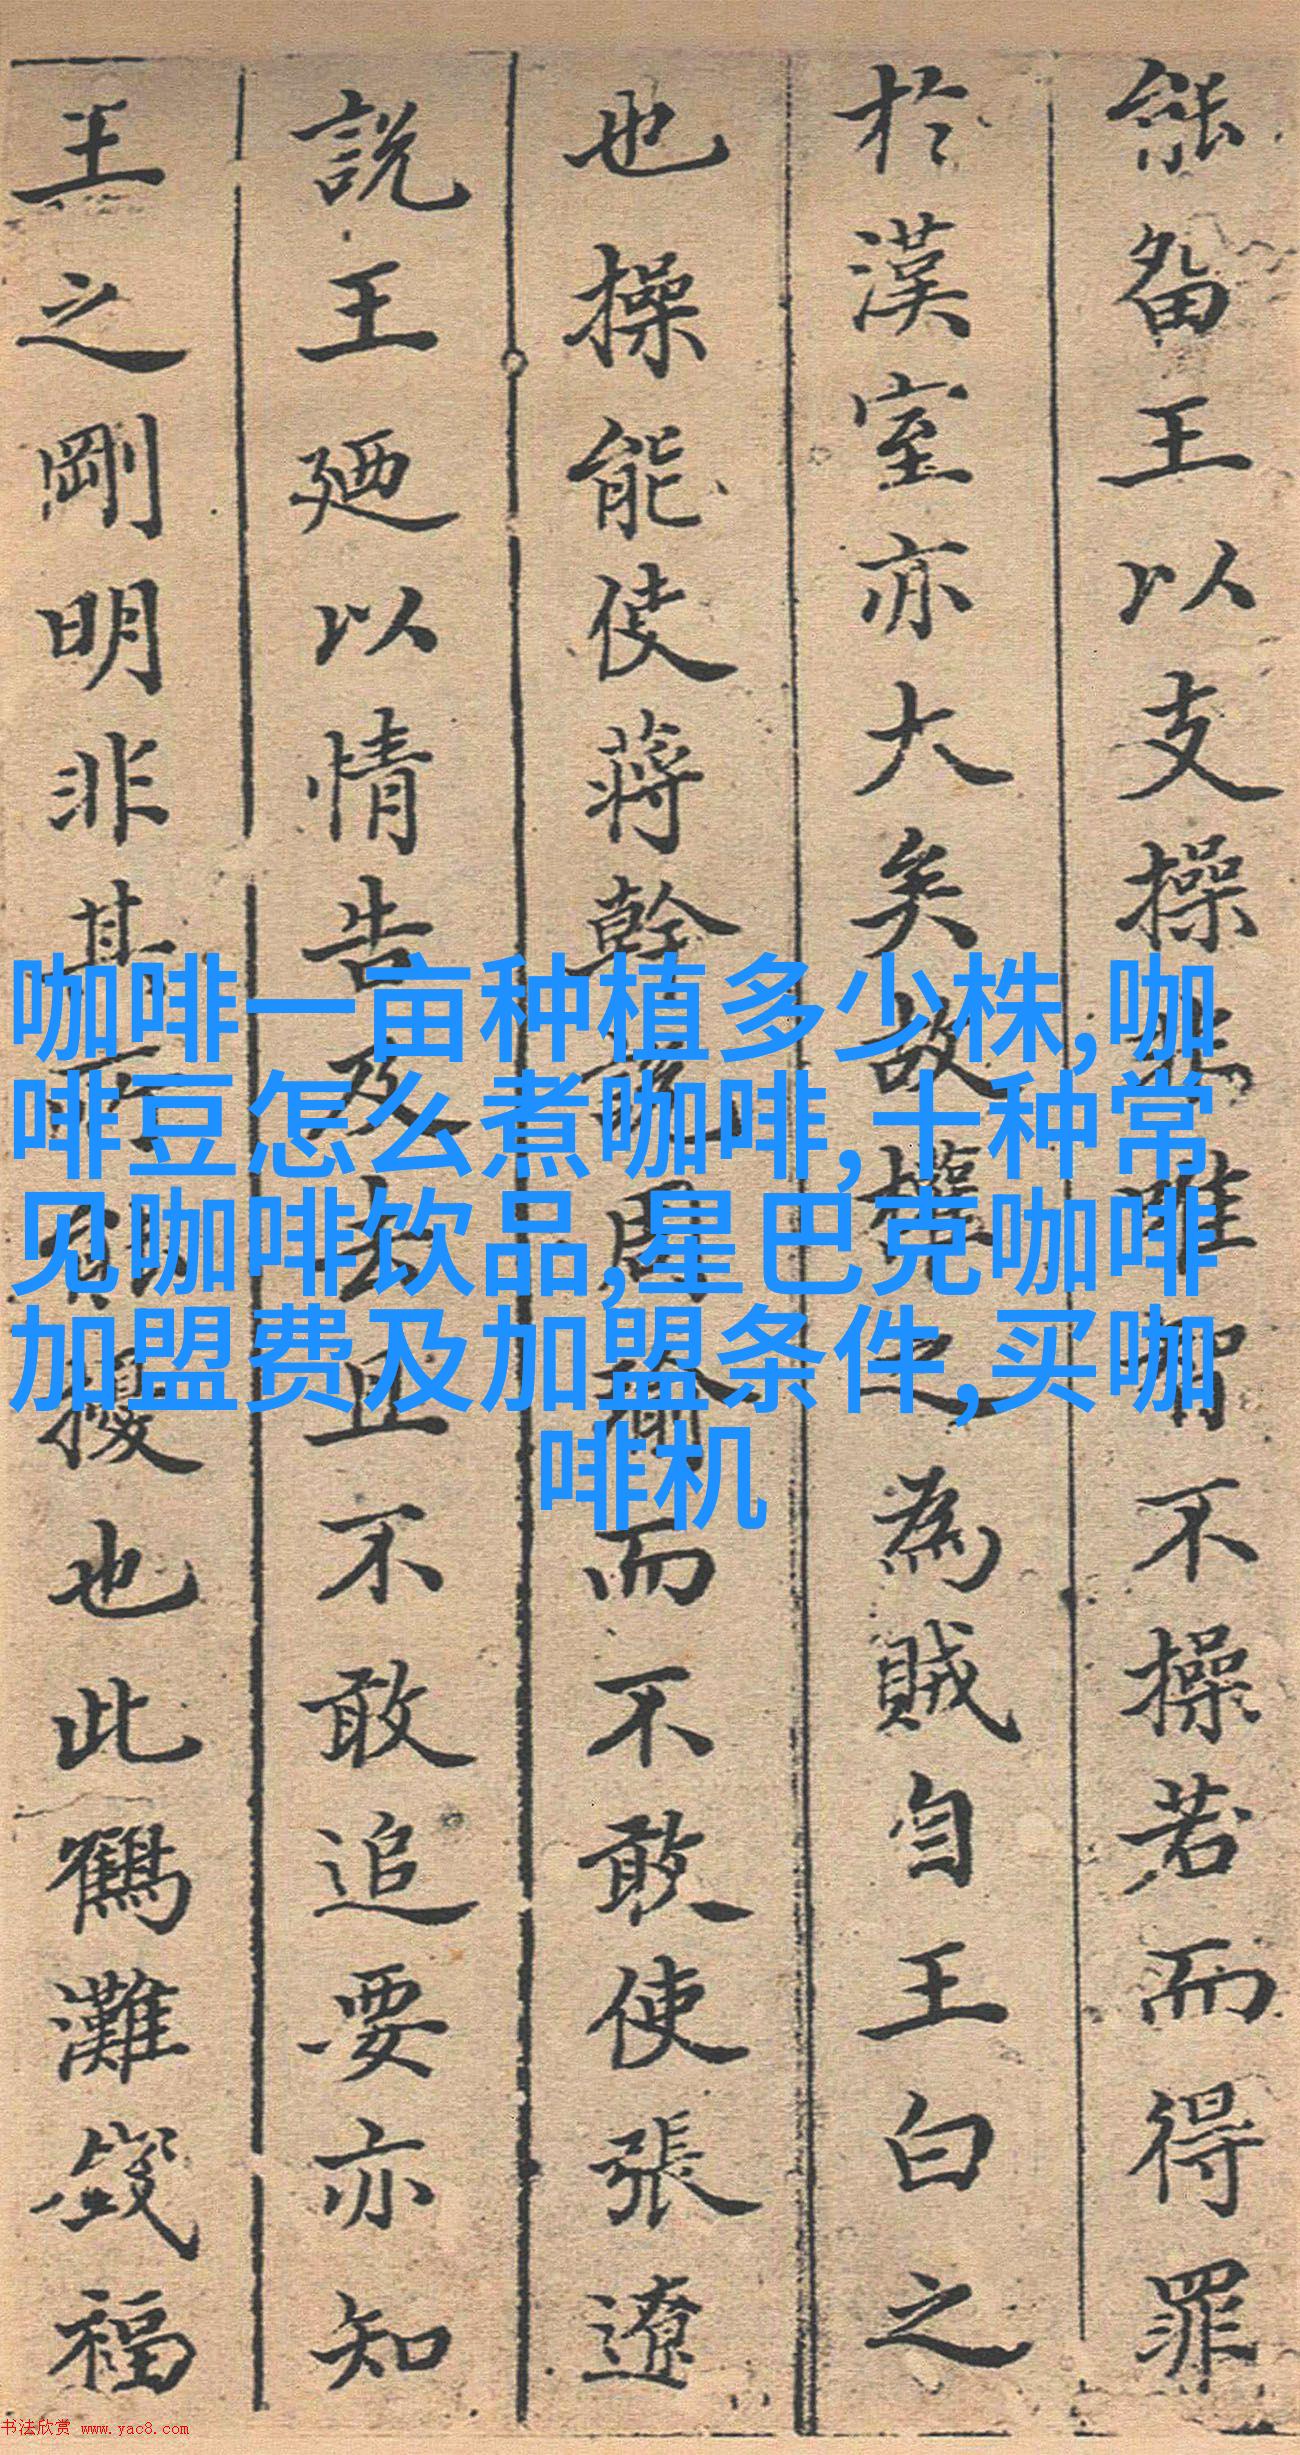 能畱王以支操雖智不操若而得罪
於漢室亦大矣故權之為賊自王白之
也操能使蔣幹說周瑜而不敢使張遼
說王廼以情告及去且不敢追要亦知
王之剛明非其所擾也此鶴灘福
咖啡一亩种植多少株,咖
啡豆怎么煮咖啡,十种常
见咖啡饮品,星巴克咖啡
加盟费及加盟条件,买咖
啡机
书法欣赏 www.yac8.com